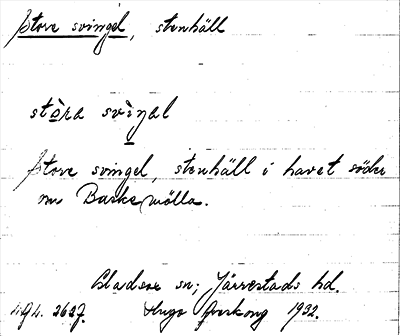 Store svingel, stenhäll
stòra svìŋal
Store svingel, stenhäll i havet söder
om Barkemölla.
Gladsax sn; Järrestads hd.
Hugo Areskoug 1932.